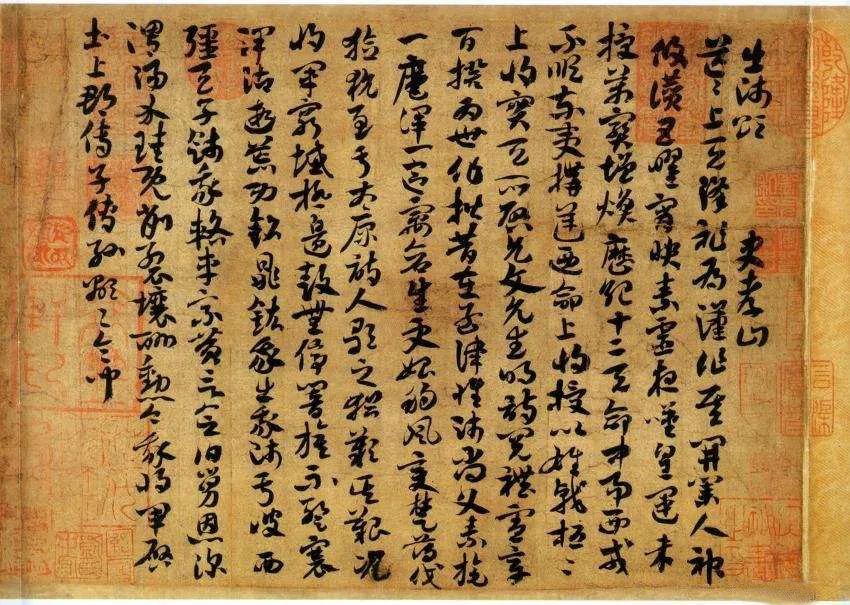 出師頌 史孝山
茫茫上天降祚為漢作基開業人神
攸讚五曜宵映素靈夜嘆皇運未
授萬寶增煥歷紀十二天命中易西戎
不順東夷構逆乃命上將授以雄戟桓桓
上將實天所啓允文允武明詩閱禮憲章
百揆為世作楷昔在孟津惟師尚父素旄
一麾渾一區宇蒼生更始朔風變楚薄伐
獫狁至于太原詩人歌之猶歎其艱況
我將軍窮城極邊鼓無停響旗不蹔褰
澤沾遐荒功銘鼎鉉我出我師于彼西
疆天子餞我輅車乘黃言念伯舅恩深
渭陽介珪既削裂壤酬勳今我將軍啓
土上郡傳子傳孫顯顯令問